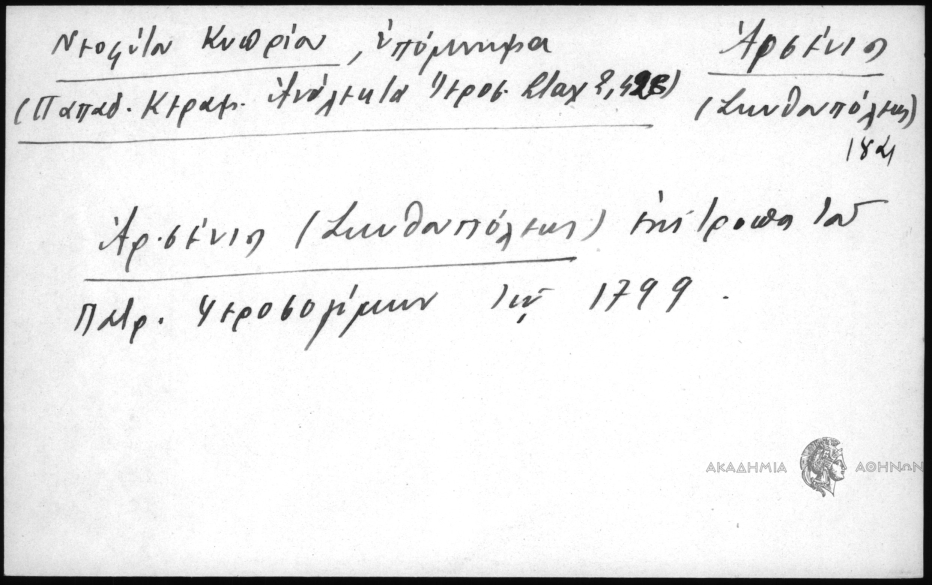 Νεοφύτου Κυπρίου, ὑπόμνημα
(Παπαδ. Κεραμ. Ἀνάλεκτα Ἱεροσ. Σταχ 2, 428)
Ἀρσένιος
(Σκυθουπόλεως)
Ἀρσένιος (Σκυθουπόλεως) ἐπίτροπος τοῦ
Πατρ. Ἱεροσολύμων τῷ 1799.
ΑΚΑΔΗΜΙΑ ΑΘΗΝΩΝ